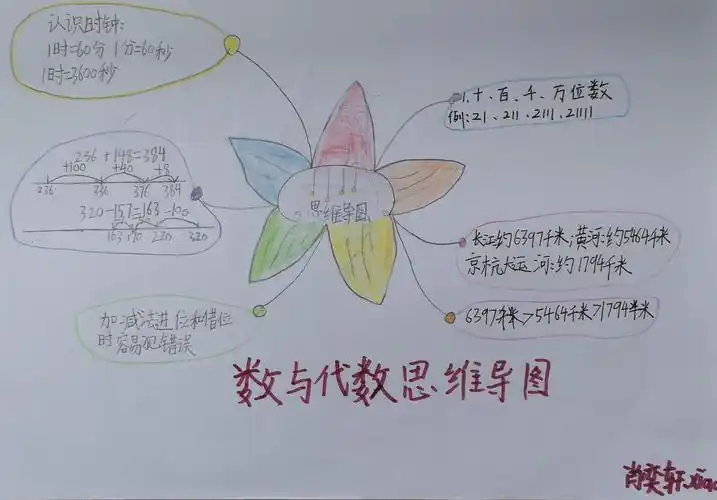 认识时钟:
1时=60分 1分=60秒
1时=3600秒
236+148=384
+100 +40 +8
236 336 376 384
320-157=163 -100
163 170 220 320
加减法进位和借位
时容易犯错误
思维导图
1、十、百、千、万位数
例:21、211、2111、21111
长江约6397千米,黄河约5464千米
京杭大运河:约1794千米
6397千米>5464千米>1794千米
数与代数思维导图
肖奕轩